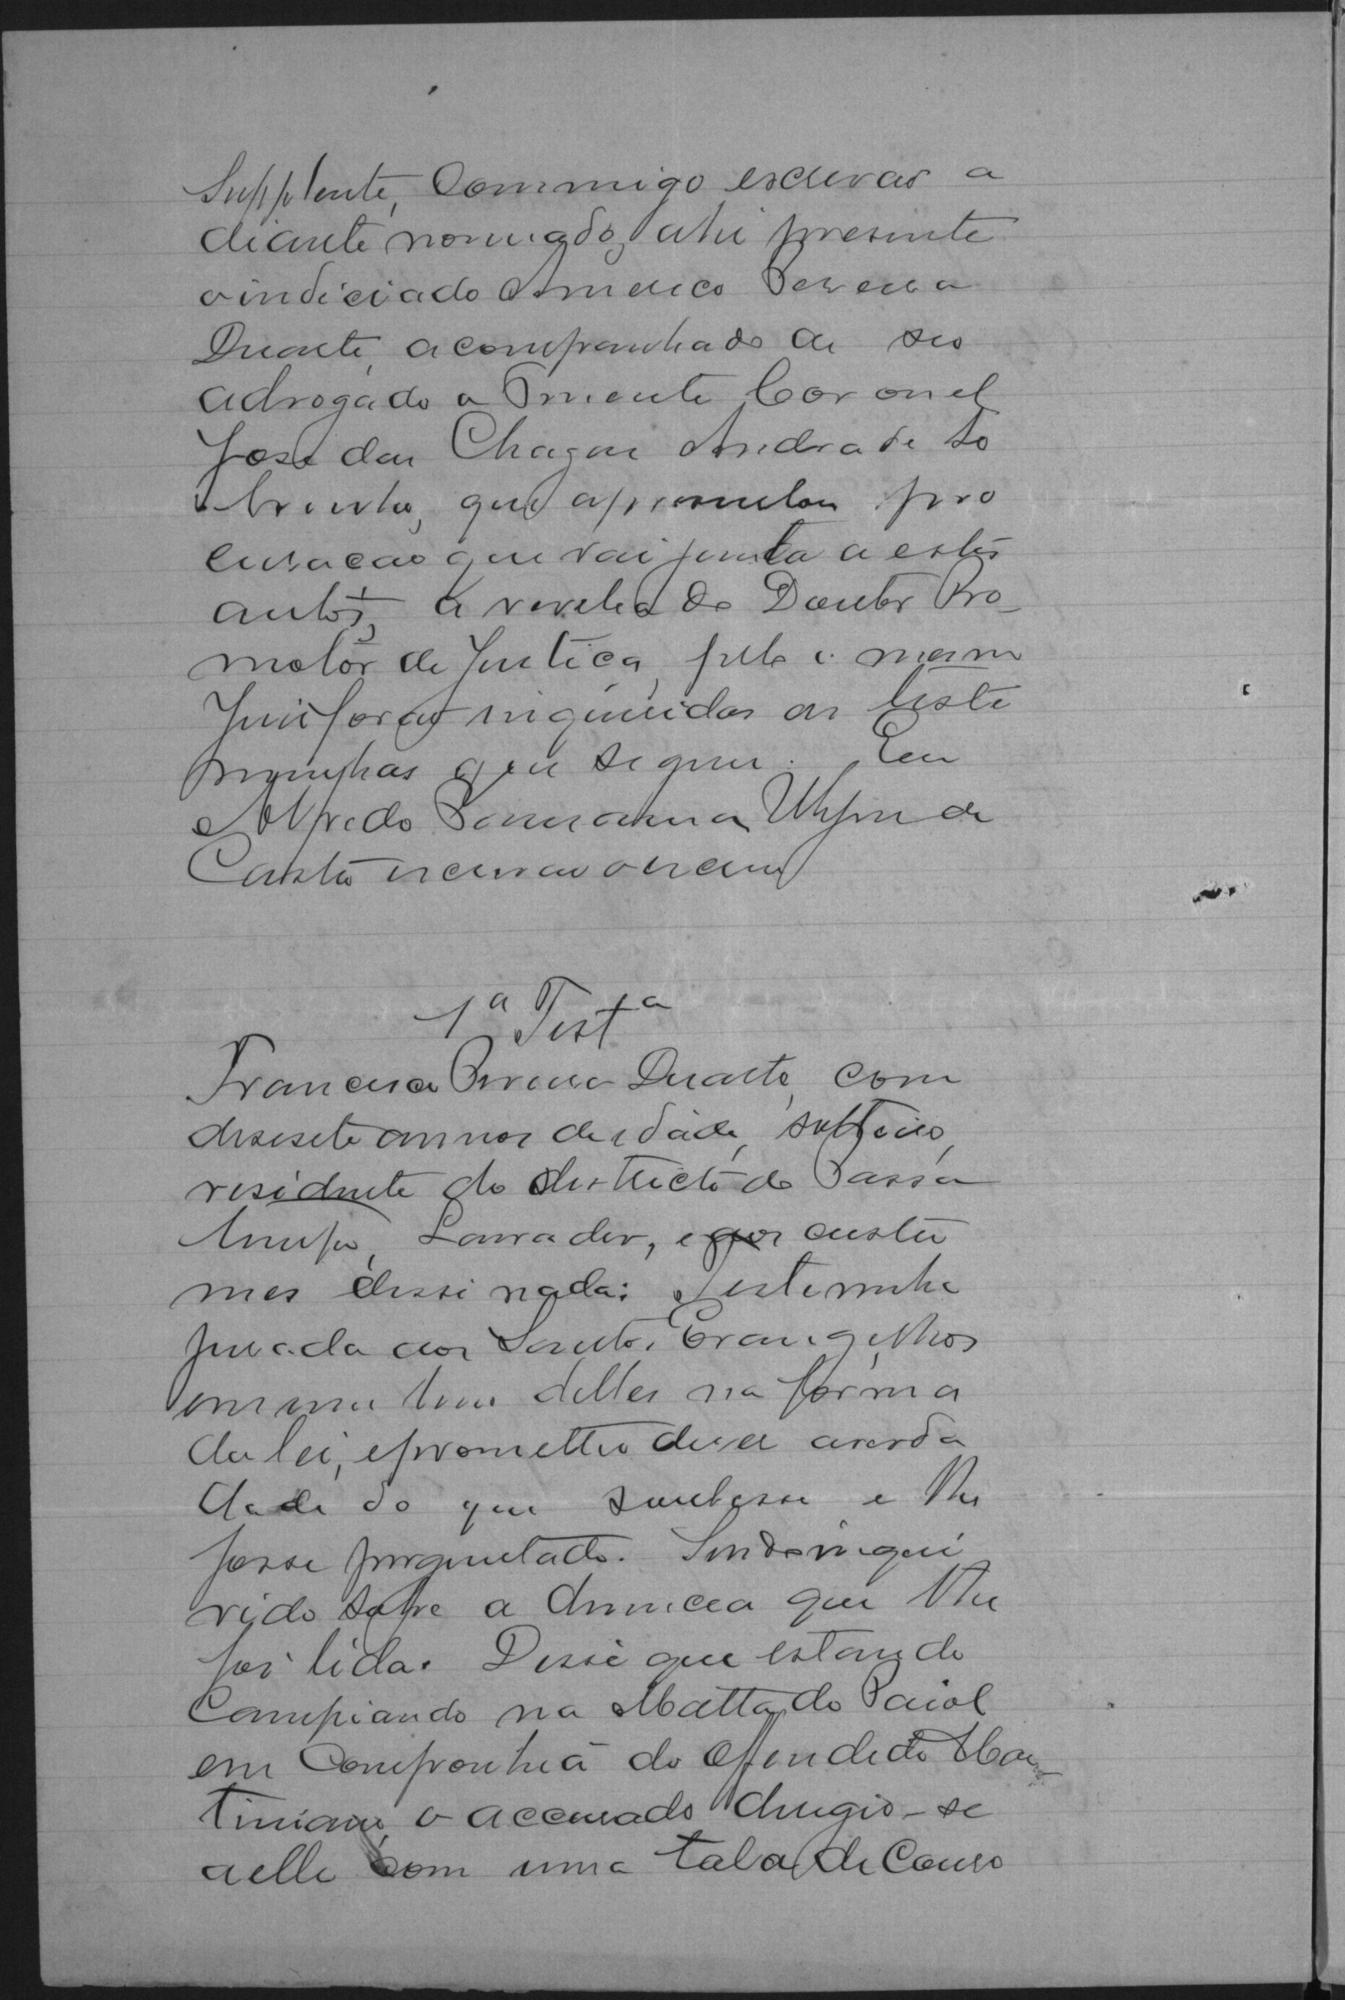 Supplente, commigo escrivão a
diante nomeado, ahi presente
o indiciado Americo Pereira
Duarte, acompanhado de seo
advogado o Tenente Coronel
José das Chagas Andrade So
brinho, que apresentou pro
curação que vai junta a estes
autos, a revelia do Doutor Pro-
motor de Justiça, pelo mesmo
Juis forão inqueridas as teste
munhas que seguem. Eu
Alfredo de
Castro escrivão o escrevi
1ª Testª
Francisco Pereira Duarte, com
desesete annos de edade, solteiro,
residente do districto de Passa
Tempo, Lavrador, e aos custu
mes disse nada: Testemunha
jurada aos Santos Evangelhos
em um livro delles na forma
da lei, e prometteu diser a verda
dade do que soubesse e lhe
fosse preguntado. Sendo inqui
rido sobre a denuncia que lhe
foi lida. Disse que estando
Campiando na Matta do Paiol
em Companhia do offendido Mar
timiano, o accusado dirigio-se
a elle com uma tala de Couro